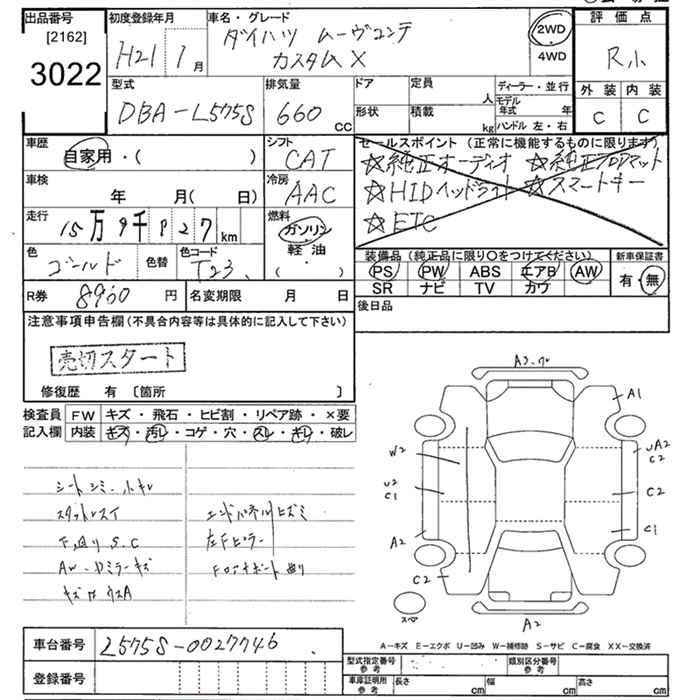 出品番号
[2162]
3022
初度登録年月
H21 1 月
車名・グレード
ダイハツ ムーヴコンテ
カスタム X
2WD
4WD
評価点
R小
外装 内装
C C
型式
DBA-L575S
排気量
660 cc
ドア
定員
人
形状
積載
kg
ディーラー・並行
モデル年式 年
ハンドル 左・右
車歴
自家用・( )
シフト
CAT
セールスポイント (正常に機能するものに限ります)
☆純正オーディオ ☆純正フロアマット
☆HIDヘッドライト ☆スマートキー
☆ETC
車検
年 月( 日)
冷房
AAC
走行
15万9千827 km
燃料
ガソリン
軽油
( )
色
ゴールド
色替
色コード
T23
装備品 (純正品に限り○をつけてください)
PS PW ABS エアB AW
SR ナビ TV カワ
新車保証書
有・無
R券 8960 円
名変期限 月 日
後日品
注意事項申告欄 (不具合内容等は具体的に記入して下さい)
売切スタート
修復歴 有 〔箇所 〕
検査員
記入欄
FW キズ・飛石・ヒビ割・リペア跡・×要
内装 キズ・汚レ・コゲ・穴・スレ・キレ・破レ
シートシミ・小キレ
スタットレスイ
下回りS.C
エンドパネルヒズミ
左Fピラー
AW・ドミラーキズ
Fロアサポート曲り
A1
W2
UA2
C2
U2
C1
C2
A2
C1
C2
スペア
A2
A-キズ E-エクボ U-凹み W-補修跡 S-サビ C-腐食 XX-交換済
車台番号 L575S-0027746
登録番号
型式指定番号
参考
類別区分番号
参考
車庫証明用
参考
長さ cm
幅 cm
高さ cm